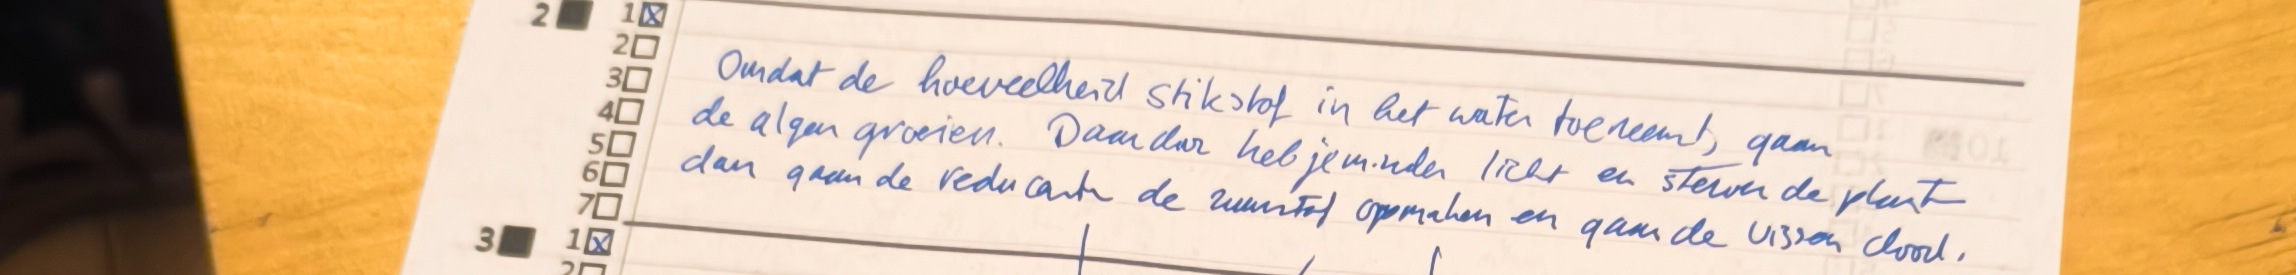 2 1
2
3
4
5
6
7
Omdat de hoeveelheid stikstof in het water toeneemt, gaan
de algen groeien. Daardoor heb je minder licht en sterven de planten
dan gaan de reducenten de zuurstof opmaken en gaan de vissen dood.
3 1
2
10